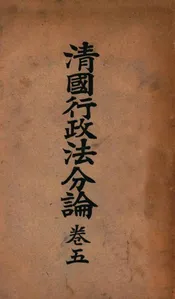 清國行政法分論
卷五